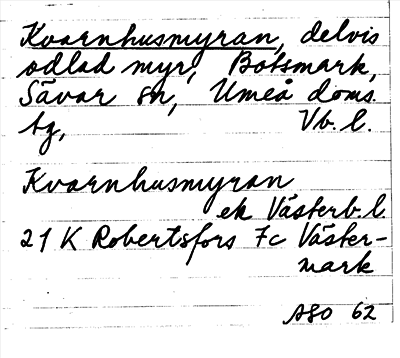 Kvarnhusmyran, delvis
odlad myr, Botsmark,
Sävar sn, Umeå doms.
tg, Vb. l.
Kvarnhusmyran
ek Västerb. l
21 K Robertsfors 7c Väster-
mark
ASO 62